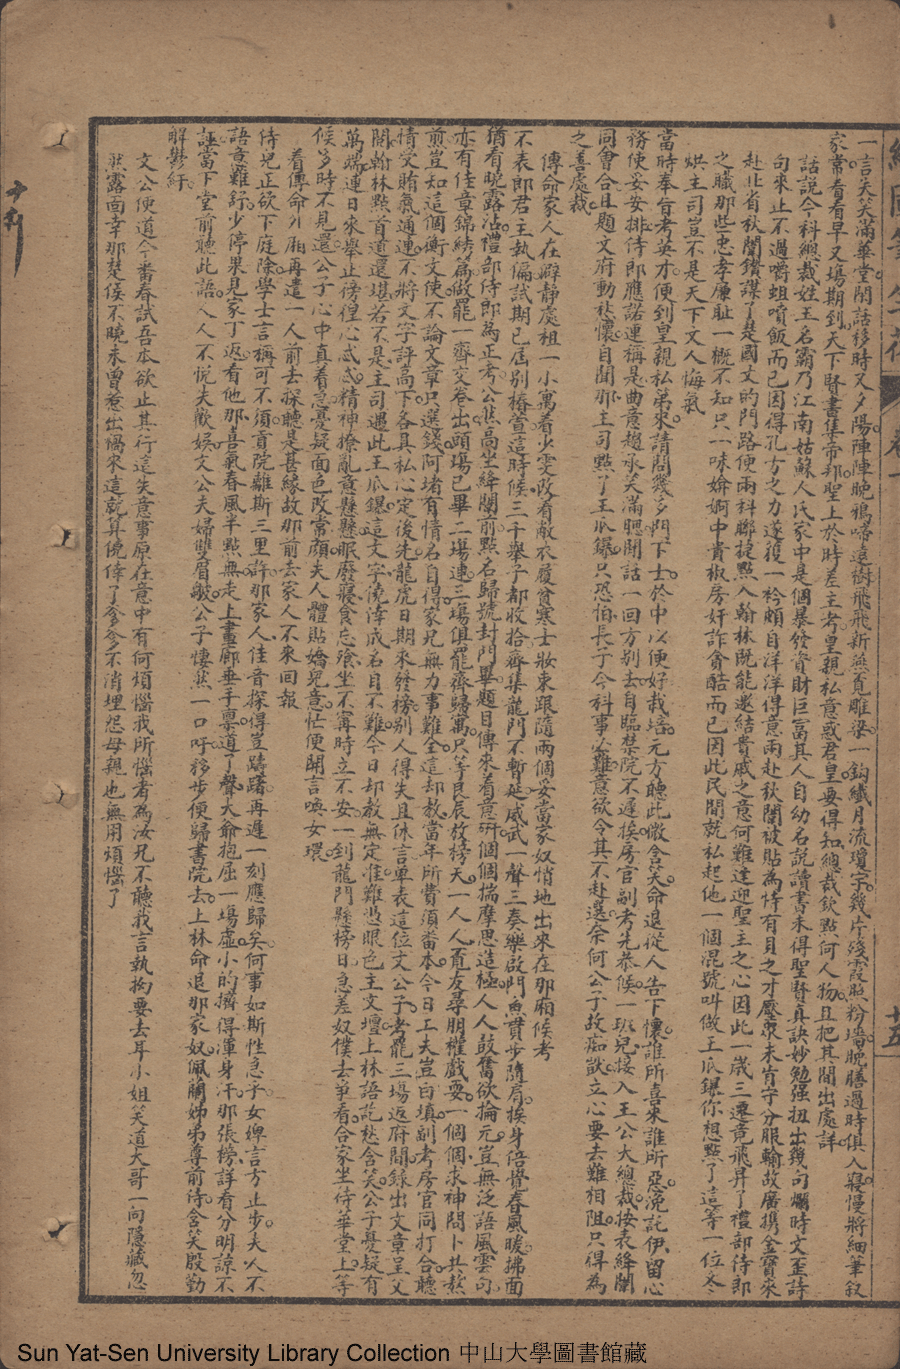 一言笑笑滿華堂閒話移時又夕陽陣陣晚鴉啼遠樹飛飛新燕覓雕梁一鈎纖月流瓊宇幾片殘霞照粉墻晚膳過時俱入寢慢將細筆叙
家常看看早又塲期到天下賢書集帝邦聖上於時差主考皇親私意惑君皇要得知總裁欽點何人物且把其間出處詳
話說今科總裁姓王名霸乃江南姑蘇人氏家中是個暴發資財巨富其人自幼名說讀書未得聖賢真訣妙勉强扭出幾句爛時文歪詩
句來止不過嚼蛆噴飯而已因得孔方之力遂復一衿頗自洋洋得意兩赴秋闈被貼為恃有貝之才壓衆未肯守分服輸故廣携金寶來
赴北省秋闈鑽謀了楚國丈的門路便兩科聯捷點入翰林既能邀結貴戚之意何難達迎聖主之心因此一歲三遷竟飛昇了禮部侍郎
之職那些忠孝廉耻一概不知只一味媕婀中貴椒房奸詐貪酷而已因此民間就私起他一個混號叫做王瓜鑤你想點了這等一位冬
烘主司豈不是天下文人悔氣
當時奉旨考英才便到皇親私第來請問幾多門下士於中以便好栽培元方聽此微含笑命退從人告下懷誰所喜來誰所惡浼託伊留心
務使妥安排侍郎應諾連稱是曲意趨承笑滿腮閒話一回方别去自臨禁院不遲挨房官副考先恭候一班兒接入王公大總裁按表絳闈
同會合出題文府動愁懷自聞那主司點了王瓜鑤只恐怕長子今科事必難意欲令其不赴選奈何公子故痴獃立心要去難相阻只得為
之善處裁
傳命家人在僻靜處租一小寓看少雯改看敝衣履貧寒士妝束跟隨兩個妥當家奴悄地出來在那廂俟考
不表郎君王執偏試期已屆别椿萱這時候三千舉子都收拾齊集龍門不暫延威武一聲三奏樂啟門魚貫步隨肩挨身倍覺春風暖拂面
猶看曉露沾禮部侍郎為正考公然高坐絳闈前點名歸號封門畢題目傳來看意研個個揣摩思造極人人鼓奮欲掄元豈無泛語風雲句
亦有佳章錦綉篇做罷一齊交卷出頭塲已畢二塲連三塲俱罷齊歸寓只等良辰放榜天一人人覓友尋朋權戲耍一個個求神問卜共熬
煎豈知這個衡文使不論文章只選錢阿堵有情名自得家兄無力事難全這却教當年所費須番本今日工夫豈白填副考房官同打合聽
情受賄職通連不將文字評高下各具私心定後先龍虎日期來發榜别人得失且休言單表這位文公子考罷三塲返府間録出文章呈父
閱翰林點首道還堪若不是主司遇此王瓜鑤這文字僥倖成名自不難今日却教無定准難憑眼色主文壇上林語訖愁含笑公子憂疑有
萬端連日來舉止徬徨心忐忑精神撩亂意懸懸眠廢寢食忘飡坐不寗時立不安一到龍門懸榜日急差奴僕去爭看合家坐侍華堂上等
候多時不見還公子心中真着急憂疑面色改常顔夫人體貼嬌兒意忙便開言喚女環
着傳命外廂再遣一人前去探聽是甚緣故那前去家人不來回報
侍兒正欲下庭除學士言稱可不須貢院離斯三里許那家人佳音探得豈躊躇再遲一刻應歸矣何事如斯性急予女婢言方止步夫人不
語意難舒少停果見家丁返看他那喜氣春風半點無走上畫廊垂手禀道了聲大爺抱屈一塲虛小的擠得渾身汗那張榜詳看分明諒不
誣當下堂前聽此語人人不悅失歡娱文公夫婦雙眉皺公子悽然一口吁移步便歸書院去上林命退那家奴佩蘭姊弟尊前侍含笑殷勤
解鬱紆
文公便道今番春試吾本欲止其行這失意事原在意中有何煩惱我所惱者為汝兄不聽我言執拘要去耳小姐笑道大哥一向隱藏忽
然露面幸那楚侯不曉未曾惹出禍來這就算僥倖了爹爹不消埋怨母親也無用煩惱了
卷一
廿五
Sun Yat-Sen University Library Collection 中山大學圖書館藏